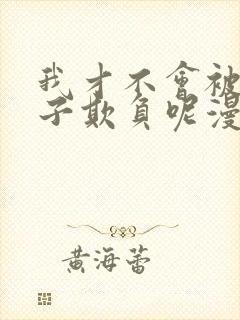 我才不會被
子欺負呢漫
黃海蕾